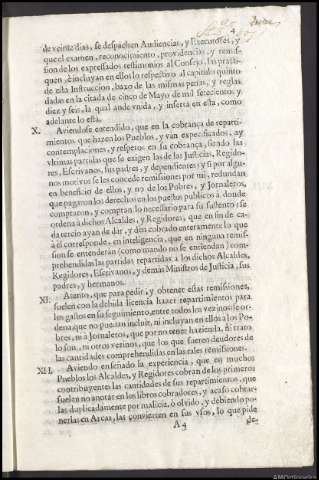 de veinte dias, se despachen Audiencias, y Executores, y
que el examen, reconocimiento, providencias, y remis-
sion de los expressados testimonios al Consejo, las practi-
quen, è incluyan en ellos lo respectivo al capitulo quinto
de esta Instruccion, baxo de las mismas penas, y reglas
dadas en la citada de cinco de Mayo de mil setecientos y
diez y seis, la qual ande vnida, y inserta en esta, como
adelante lo està.
X. Aviendose entendido, que en la cobrança de reparti-
mientos que hazen los Pueblos, y vàn expecificados, ay
contemplaciones, y respetos en su cobrança, siendo las
vltimas partidas que se exigen las de las Justicias, Regido-
res, Escrivanos, sus padres, y dependientes; y si por algu-
nos motivos se les concede remissiones por mi, redundan
en beneficio de ellos, y no de los Pobres, y Jornaleros,
que pagaron los derechos en los puestos publicos à donde
compraron, y compran lo necessario para su sustento; se
ordena à dichos Alcaldes, y Regidores, que en fin de ca-
da tercio ayan de dar, y dèn cobrado enteramente lo que
à èl corresponde, en inteligencia, que en ninguna remis-
sion se entenderàn (como mando no se entiendan) com-
prehendidas las partidas repartidas à los dichos Alcaldes,
Regidores, Escrivanos, y demàs Ministros de Justicia, sus
padres, y hermanos.
XI. Atento, que para pedir, y obtener estas remissiones,
suelen con la debida licencia hazer repartimientos para
los gastos en su seguimiento, entre todos los vezinos: se or-
dena, que no puedan incluir, ni incluyan en ellos à los Po-
bres, ni à Jornaleros, que por no tener hazienda, ni trato
lo son, ni otros vezinos, que los que fueren deudores de
las cantidades comprehendidas en las tales remissiones.
XII. Aviendo enseñado la experiencia, que en muchos
Pueblos los Alcaldes, y Regidores cobran de los primeros
contribuyentes las cantidades de sus repartimientos, que
suelen no anotar en los libros cobradores, y acaso cobrar-
las duplicadamente por malicia, ò olvido, y debiendo po-
nerlas en Arcas, las convierten en sus vsos, lo que pide
A 4
de-